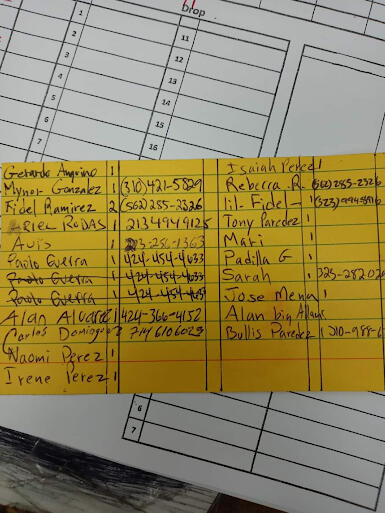 Drop
1
2
3
4
5
11
12
13
14
15
16
Gerardo Anguino 1
Mynor Gonzalez 1 (310)421-5829
Fidel Ramirez 2 (562)285-2326
Ariel RODAS 1 2134949125
Avis 1 213-256-1363
Paolo Guerra 1 424-454-4633
Paolo Guerra 1 424-454-4633
Paolo Guerra 1 424-454-4633
Alan Alvarez 1 424-366-4152
Carlos Dominguez 2 7146106029
Naomi Perez 1
Irene Perez 1
Isaiah Perez 1
Rebecca R. 1 (562)285-2326
lil-Fidel- 1
Tony Paredez 1
Maki 1
Padilla G 1
Sarah 1
Jose Mena 1
Alan big
Bullis Paredez 1
6
7